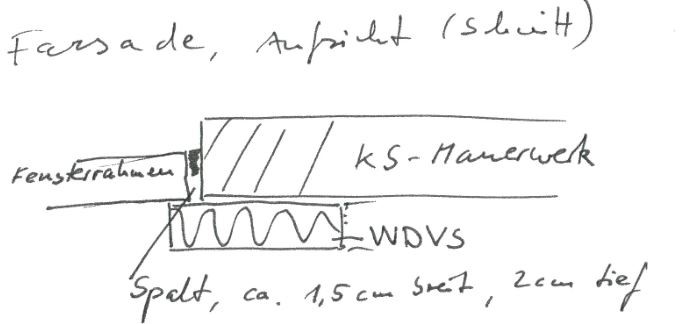 Farsade, Aufsicht (Schnitt)
Fensterrahmen
KS-Mauerwerk
WDVS
Spalt, ca. 1,5 cm breit, 2 cm tief